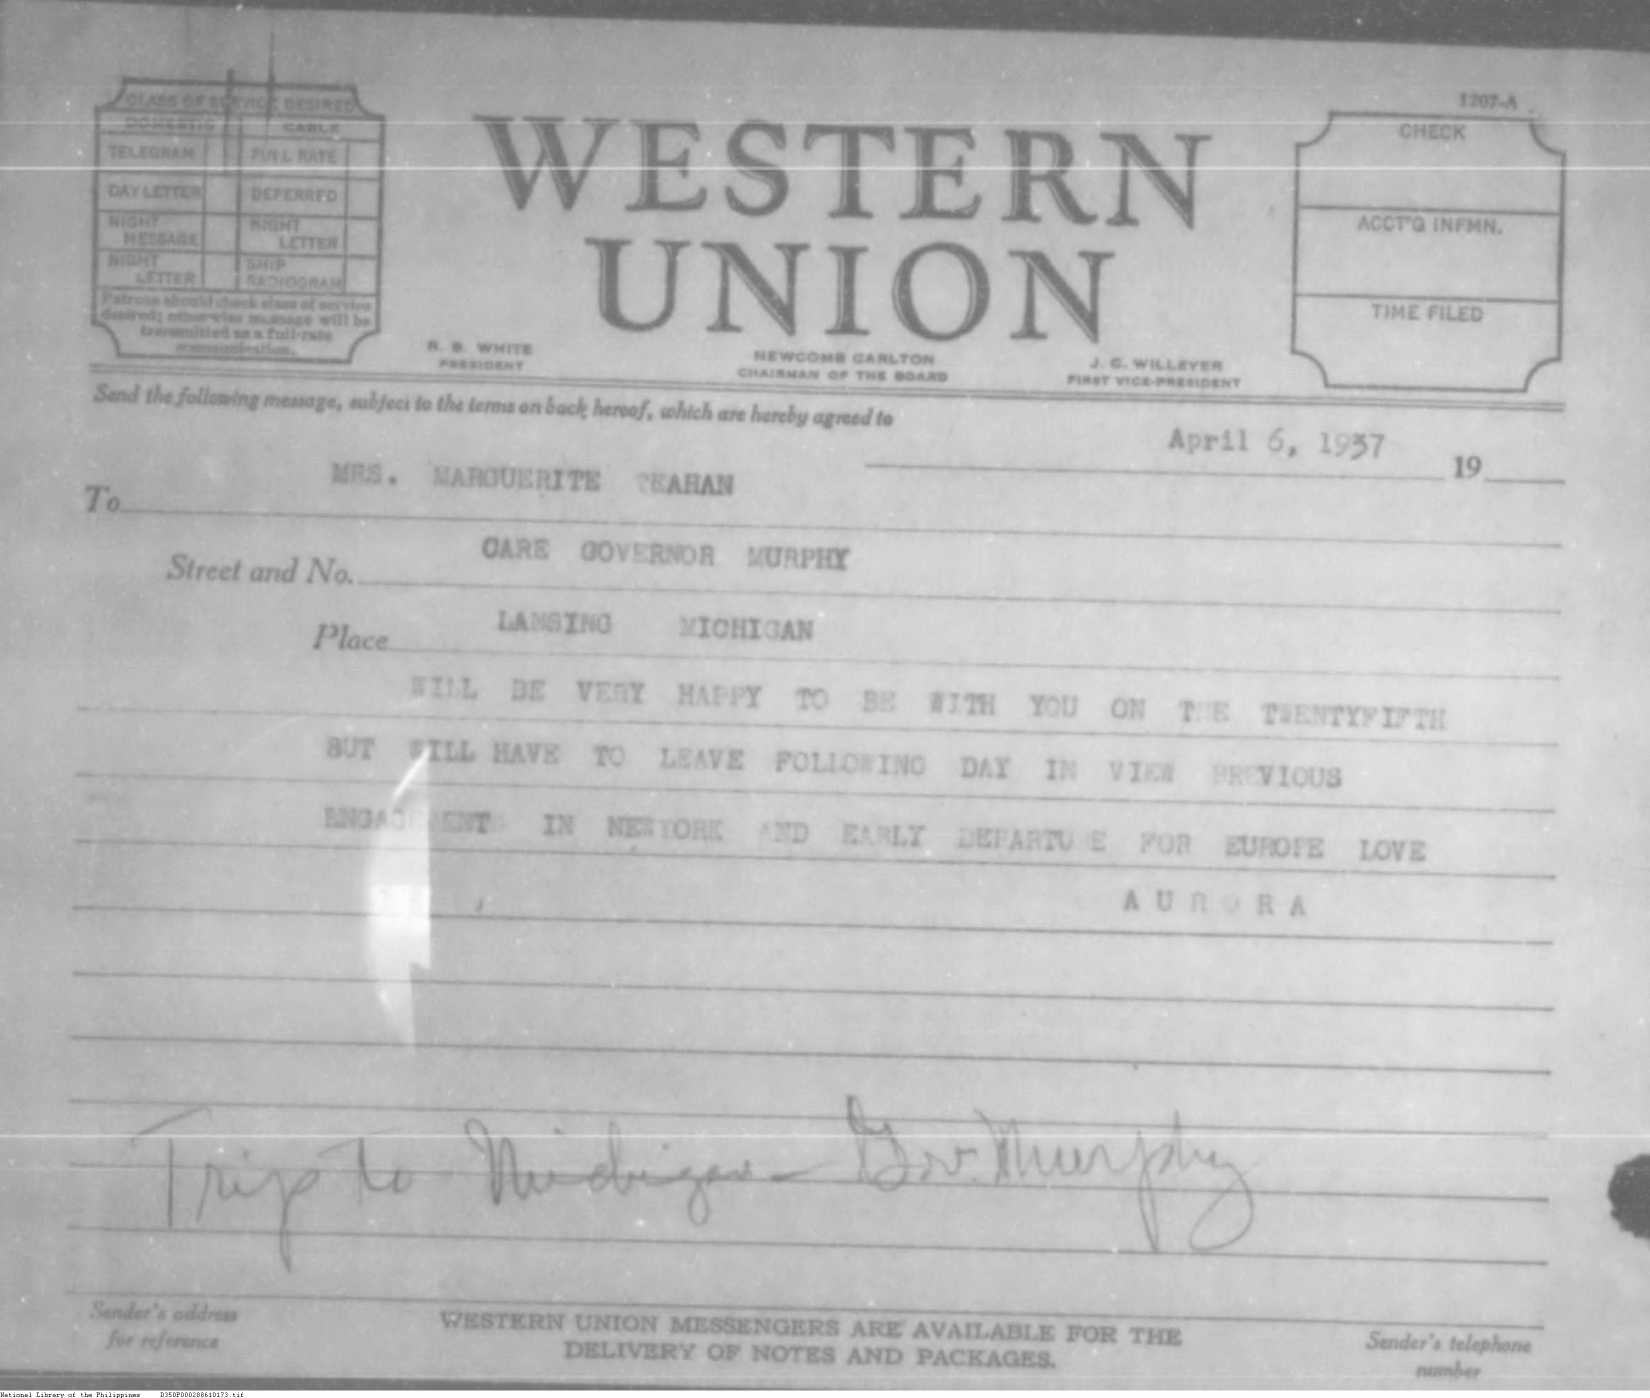 1207-A
CLASS OF SERVICE DESIRED
DOMESTIC CABLE
TELEGRAM FULL RATE
DAY LETTER DEFERRED
NIGHT MESSAGE NIGHT LETTER
NIGHT LETTER SHIP RADIOGRAM
Patrons should check class of service
desired; otherwise message will be
transmitted as a full-rate
communication.
WESTERN
UNION
R. B. WHITE
PRESIDENT
NEWCOMB CARLTON
CHAIRMAN OF THE BOARD
J. C. WILLEVER
FIRST VICE-PRESIDENT
CHECK
ACCT'G INFMN.
TIME FILED
Send the following message, subject to the terms on back hereof, which are hereby agreed to
April 6, 1937 19
To MRS. MARGUERITE TEAHAN
Street and No. CARE GOVERNOR MURPHY
Place LANSING MICHIGAN
WILL BE VERY HAPPY TO BE WITH YOU ON THE TWENTYFIFTH
BUT WILL HAVE TO LEAVE FOLLOWING DAY IN VIEW PREVIOUS
ENGAGEMENTS IN NEWYORK AND EARLY DEPARTURE FOR EUROPE LOVE
AURORA
Trip to Michigan - Gov. Murphy
Sender's address
for reference
WESTERN UNION MESSENGERS ARE AVAILABLE FOR THE
DELIVERY OF NOTES AND PACKAGES.
Sender's telephone
number
National Library of the Philippines D350P000288610173.tif